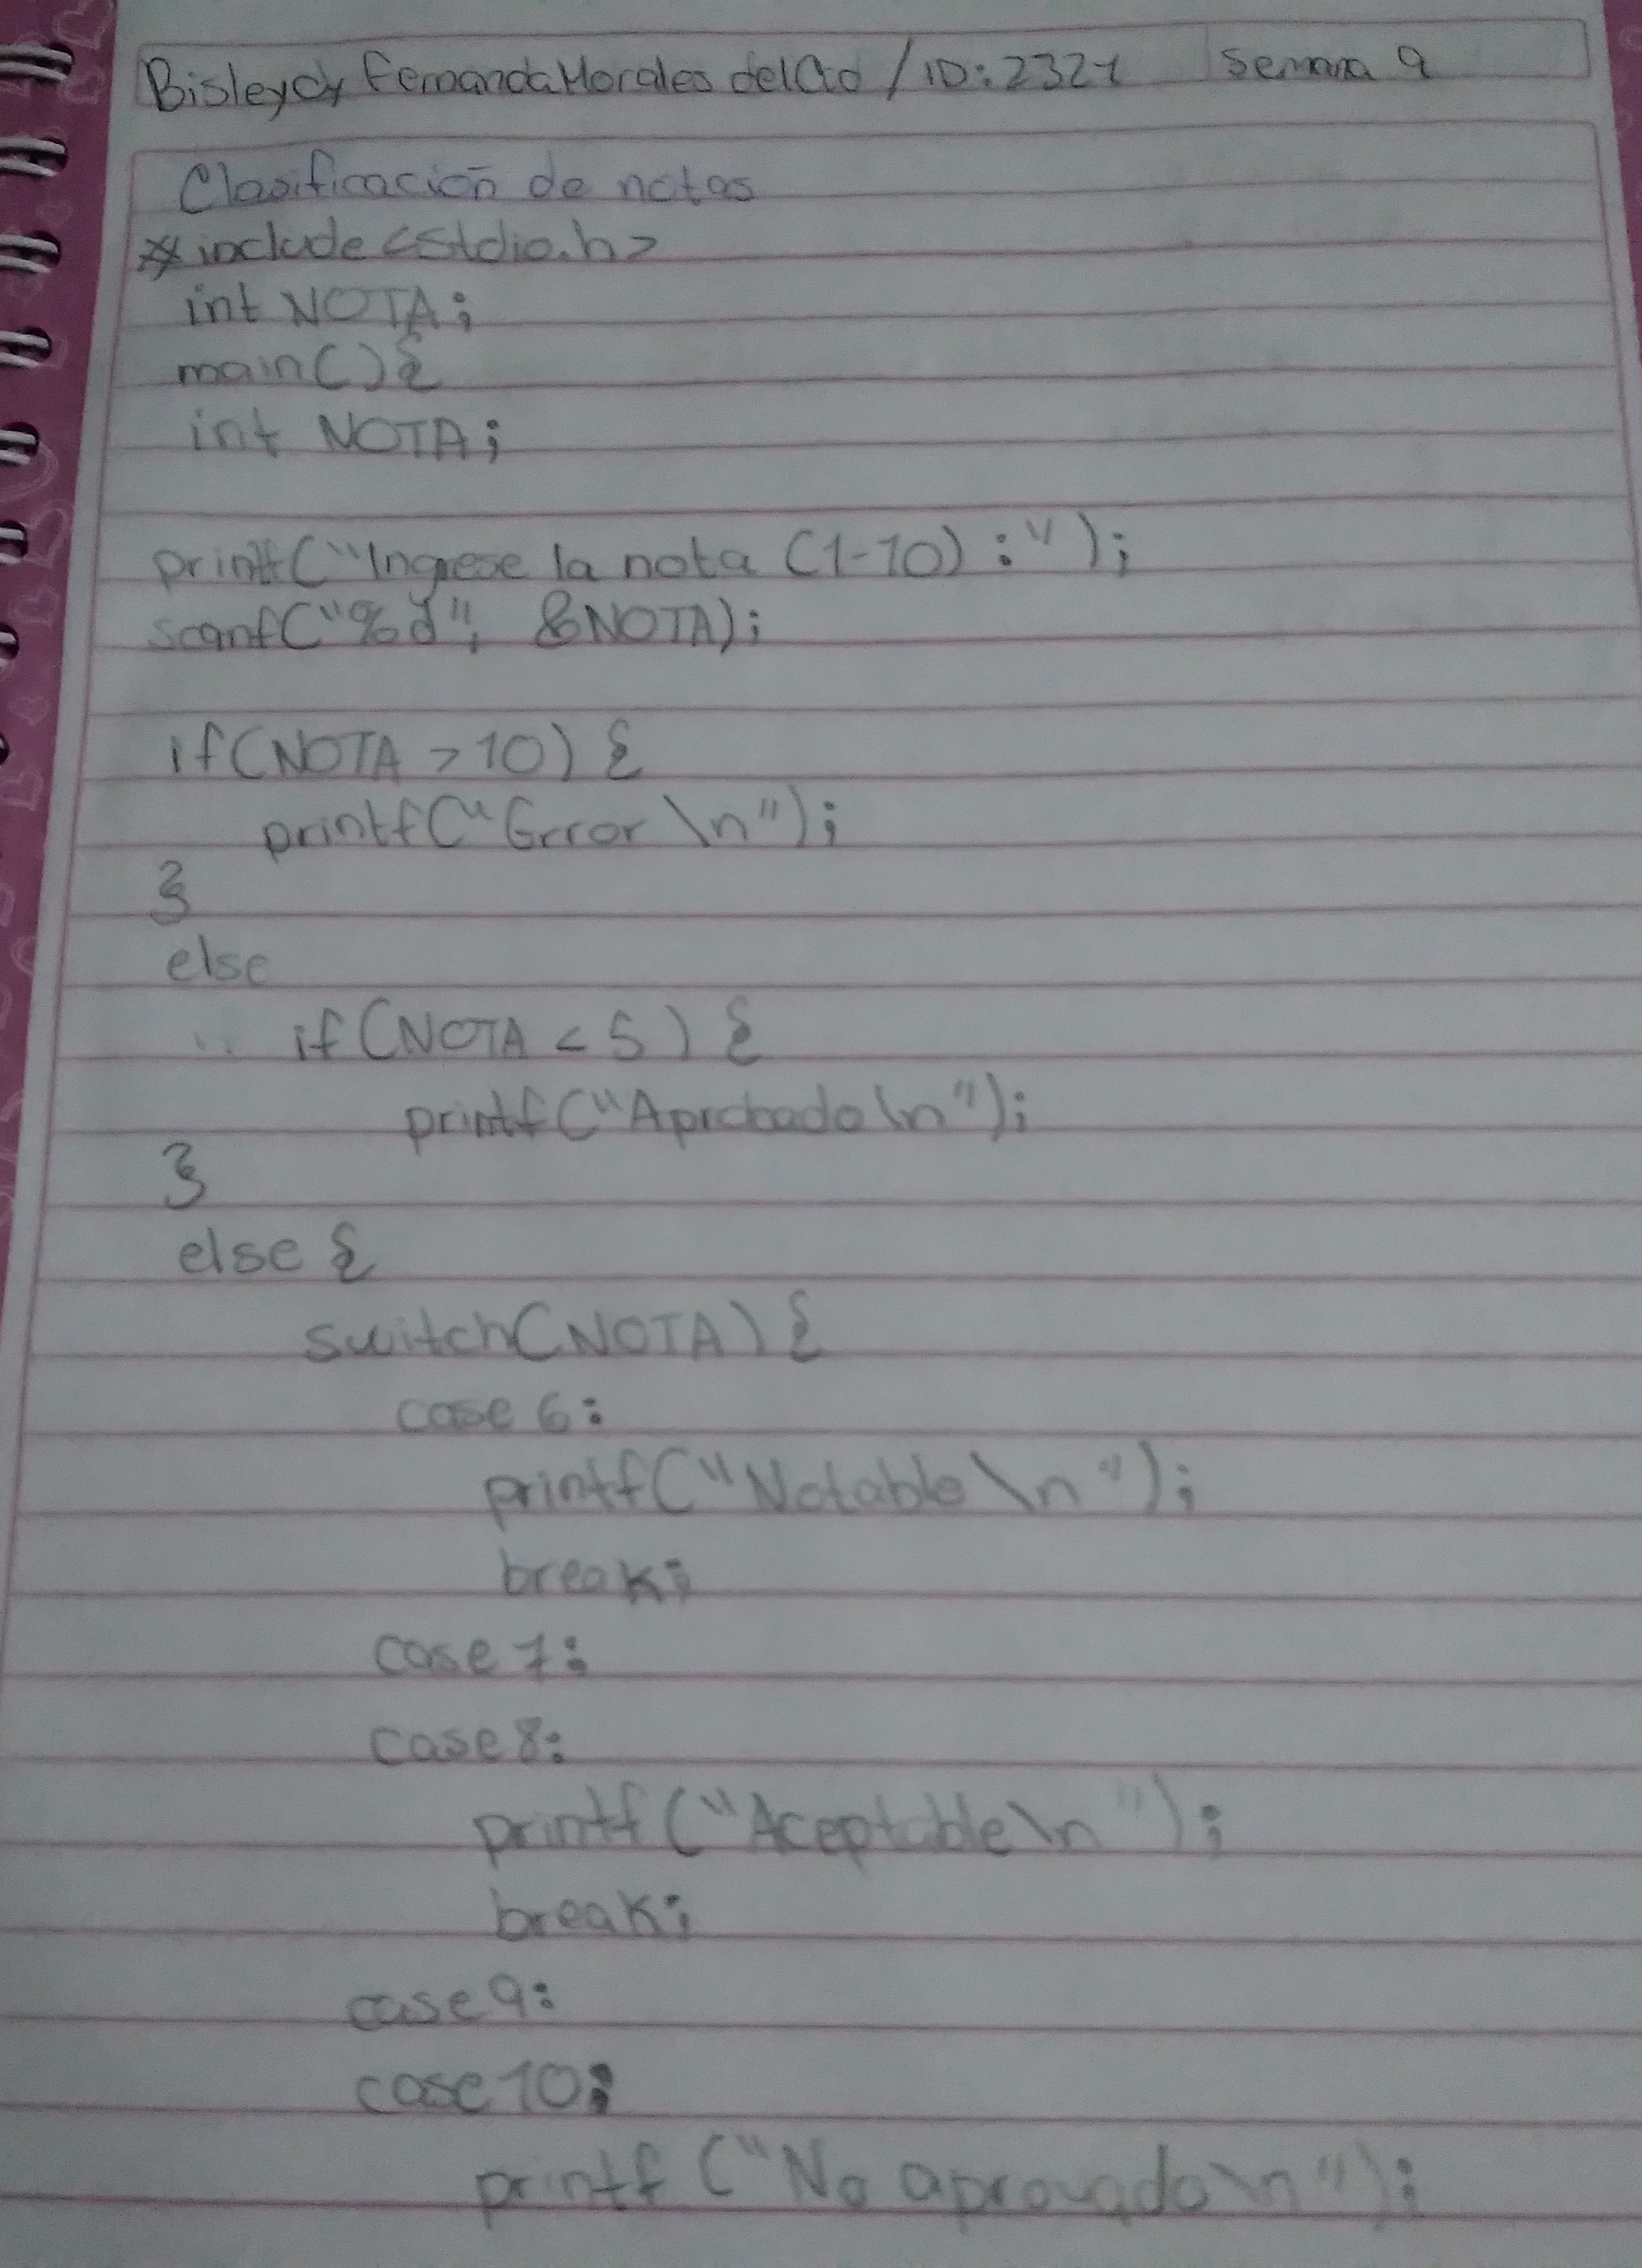 Bisleydy Fernanda Morales del Cid / ID: 2321 Semana 9
Clasificación de notas
# include <stdio.h>
int NOTA;
main() {
int NOTA;
printf("Ingrese la nota (1-10) : ");
scanf("%d", &NOTA);
if(NOTA > 10) {
printf("Error \n");
}
else
if(NOTA < 5) {
printf("Aprobado \n");
}
else {
switch(NOTA) {
case 6:
printf("Notable \n");
break;
case 7:
case 8:
printf("Aceptable \n");
break;
case 9:
case 10:
printf("No aprovado \n");